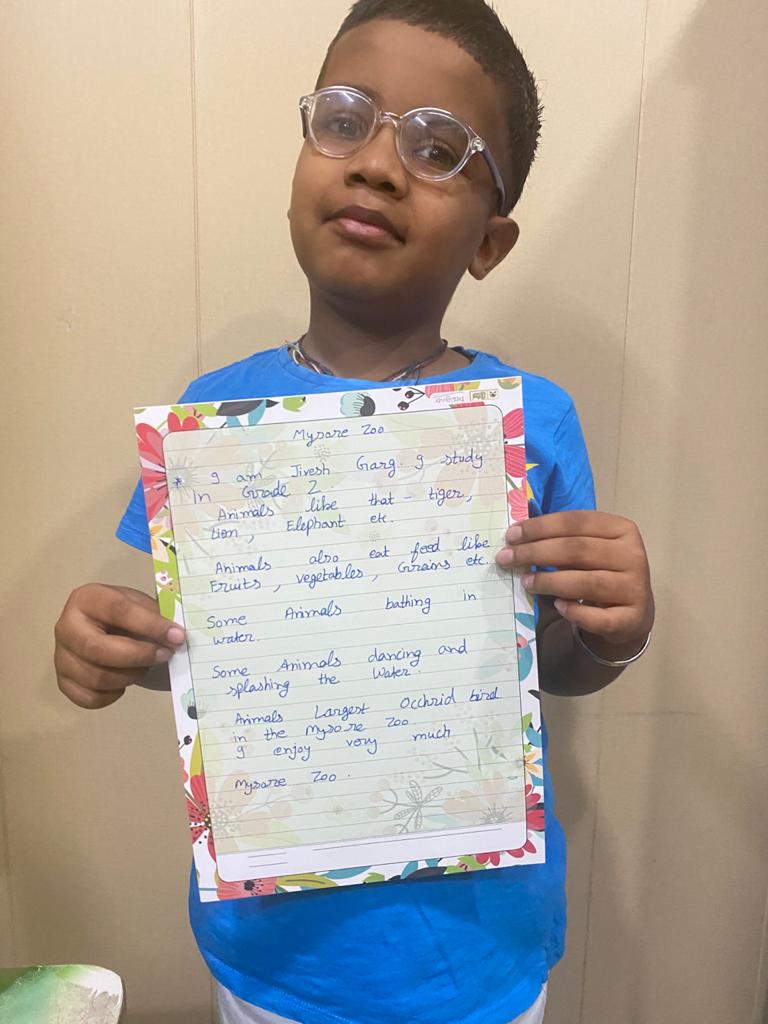 Mysore Zoo
* I am Jivesh Garg. I study
In Grade 2
Animals like that - tiger,
Lion, Elephant etc.
Animals also eat feed like
Fruits, vegetables, Grains etc.
Some Animals bathing in
water.
Some Animals dancing and
splashing the Water.
Animals Largest Occhrid bird
in the Mysore Zoo.
I enjoy very much
Mysore Zoo.